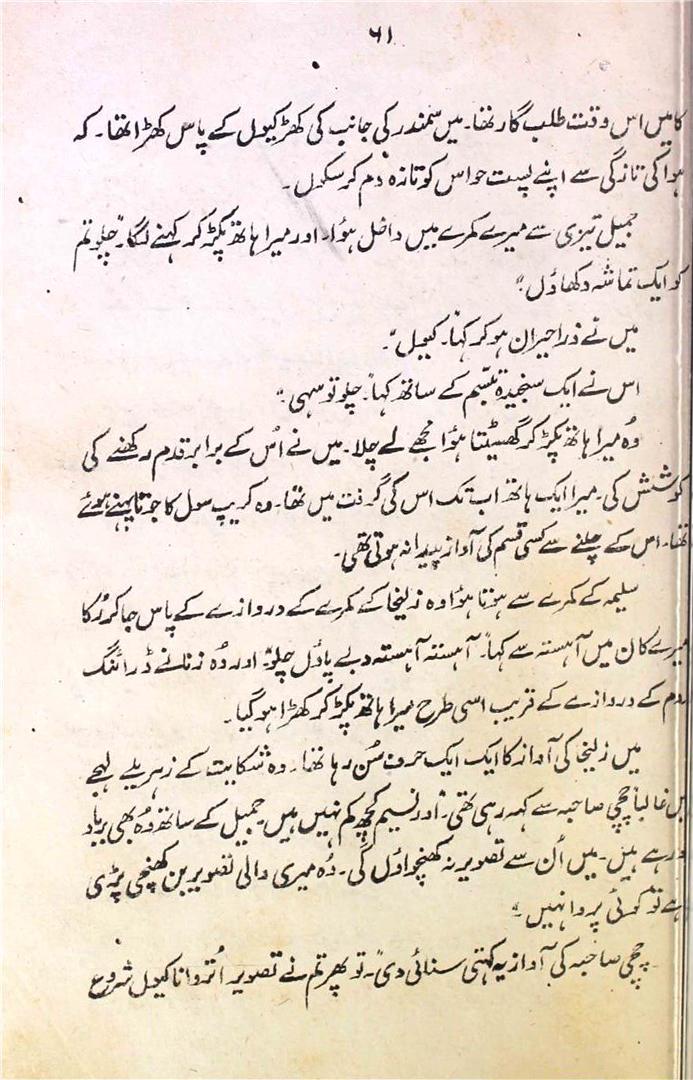 ۶۱
کا میں اس وقت طلب گار تھا۔ میں سمندر کی جانب کی کھڑکیوں کے پاس کھڑا تھا۔ کہ
ہوا کی تازگی سے اپنے پست حواس کو تازہ دم کر سکوں۔
جمیل تیزی سے میرے کمرے میں داخل ہوٴا۔ اور میرا ہاتھ پکڑ کر کہنے لگا۔ "چلو تم
کو ایک تماشہ دکھاؤں"۔
میں نے ذرا حیران ہو کر کہا۔ "کیوں"۔
اس نے ایک سنجیدہ تبسّم کے ساتھ کہا "چلو تو سہی"۔
وُہ میرا ہاتھ پکڑ کر گھسیٹتا ہوٴا مجھے لے چلا۔ میں نے اُس کے برابر قدم رکھنے کی
کوشش کی۔ میرا ایک ہاتھ اب تک اس کی گرفت میں تھا۔ وہ کریپ سول کا جوتا پہنے ہوئے
تھا۔ اس کے چلنے سے کسی قسم کی آواز پیدا نہ ہوتی تھی۔
سلیمہ کے کمرے سے ہوتا ہوٴا وہ زلیخا کے کمرے کے دروازے کے پاس جا کر رُکا
میرے کان میں آہستہ سے کہا۔ "آہستہ آہستہ دبے پاؤں چلو"۔ اور وُہ زنانے ڈرائنگ
روم کے دروازے کے قریب اسی طرح میرا ہاتھ پکڑ کر کھڑا ہو گیا۔
میں زلیخا کی آواز کا ایک ایک حرف سُن رہا تھا۔ وہ شکایت کے زہریلے لہجے
میں غالباً چچی صاحبہ سے کہہ رہی تھی۔ "اور نسیم کچھ کم نہیں ہیں۔ جمیل کے ساتھ وُہ بھی برباد
ہو رہے ہیں۔ میں اُن سے تصویر نہ کھنچواؤں گی۔ وُہ میری والی تصویر بن کھنچی پڑی
ہے تو کوئی پروا نہیں"۔
چچی صاحبہ کی آواز یہ کہتی سنائی دی۔ "تو پھر تم نے تصویر اُتروانا کیوں شروع